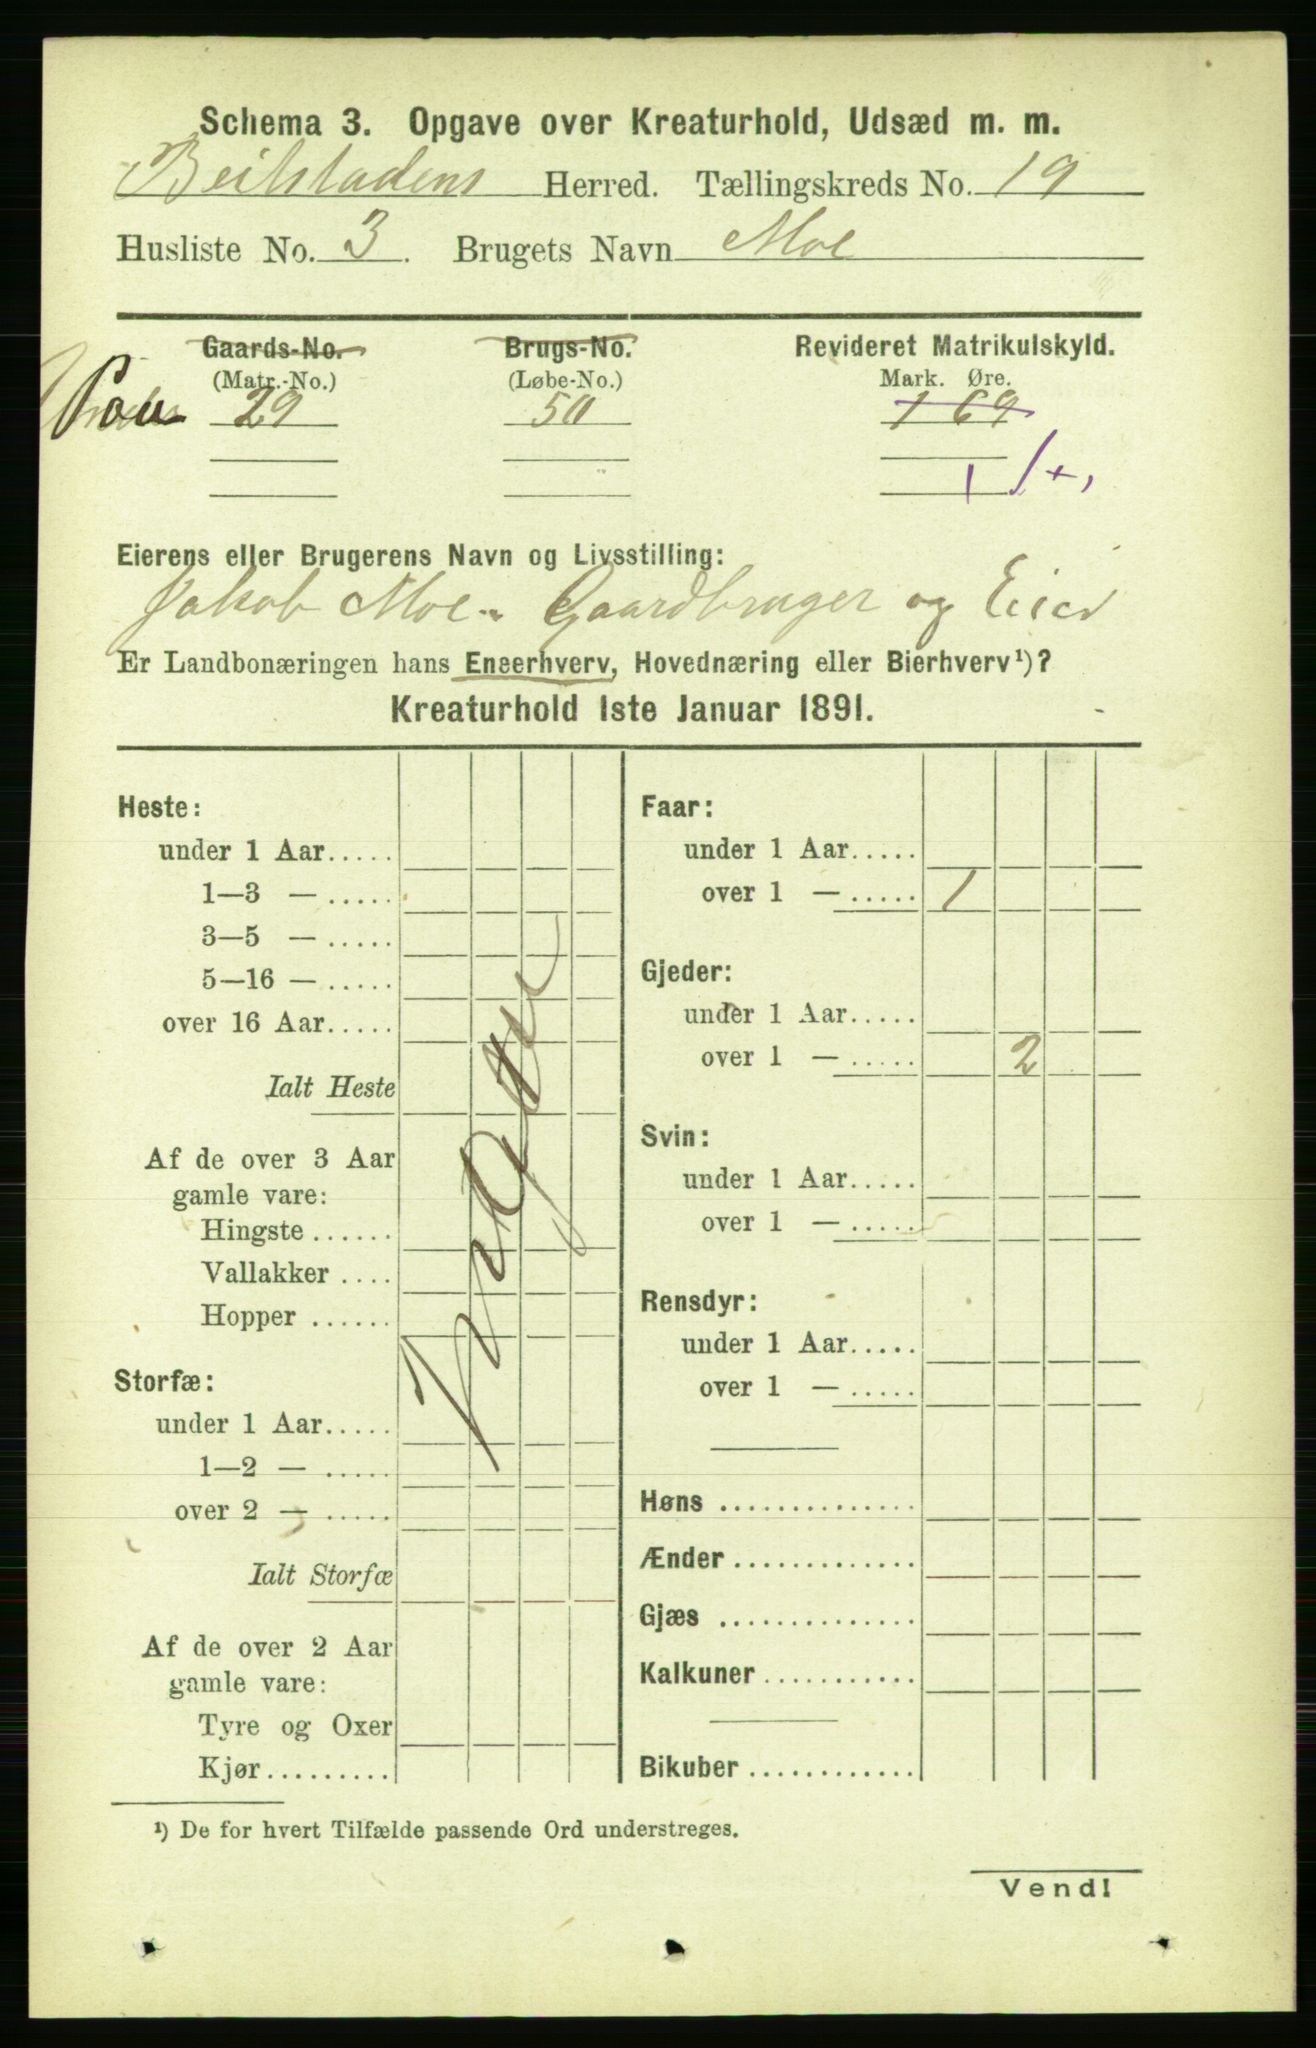 Schema 3. Opgave over Kreaturhold, Udsæd m. m.
Beitstadens Herred. Tællingskreds No. 19
Husliste No. 3. Brugets Navn Moe
Gaards-No. Brugs-No. Revideret Matrikulskyld.
(Matr.-No.) (Løbe-No.) Mark. Øre.
29 50 1 69
1
Eierens eller Brugerens Navn og Livsstilling:
Jakob Moe - Gaardbruger og Eier
Er Landbonæringen hans Eneerhverv, Hovednæring eller Bierhverv¹)?
Kreaturhold 1ste Januar 1891.
Heste:
under 1 Aar.....
1—3 — .....
3—5 — .....
5—16 — .....
over 16 Aar.....
Ialt Heste
Af de over 3 Aar
gamle vare:
Hingste ......
Vallakker ....
Hopper ......
Storfæ:
under 1 Aar.....
1—2 — .....
over 2 — .....
Ialt Storfæ
Af de over 2 Aar
gamle vare:
Tyre og Oxer
Kjør.........
Ingen
Faar:
under 1 Aar.....
over 1 — ..... 1
Gjeder:
under 1 Aar.....
over 1 — ..... 2
Svin:
under 1 Aar.....
over 1 — .....
Rensdyr:
under 1 Aar.....
over 1 — .....
Høns ..............
Ænder .............
Gjæs ..............
Kalkuner ...........
Bikuber ............
¹) De for hvert Tilfælde passende Ord understreges.
Vend!